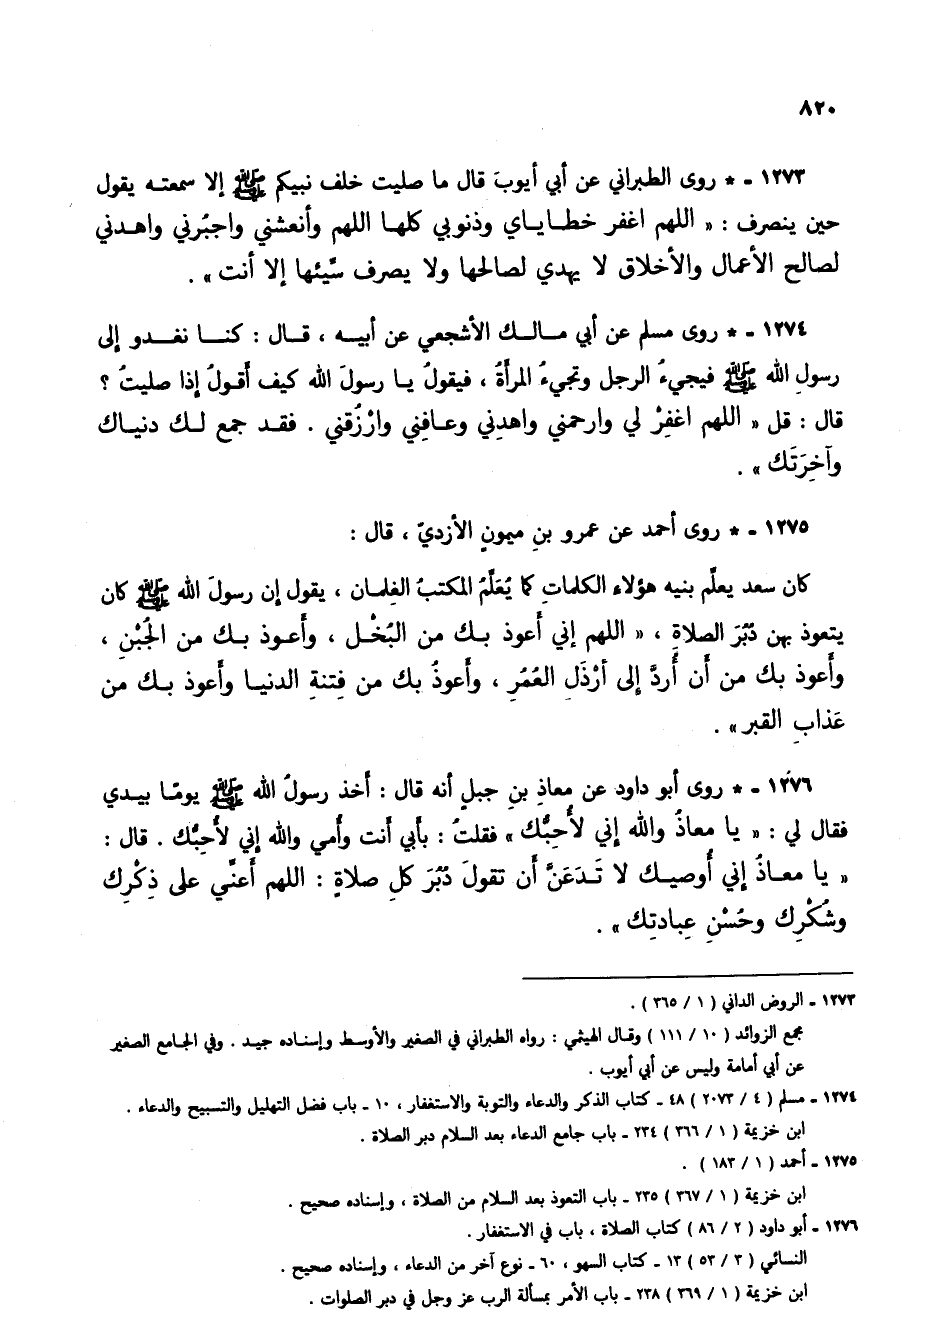 ٨٢٠
١٢٧٣ - * روى الطبراني عن أبي أيوبَ قال ما صليت خلف نبيكم ﷺ إلا سمعته يقول
حين ينصرف : « اللهم اغفر خطاياي وذنوبي كلها اللهم وأنعشني واجبُرني واهدني
لصالح الأعمال والأخلاق لا يهدي لصالحها ولا يصرف سيِّئها إلا أنت » .
١٢٧٤ - * روى مسلم عن أبي مالك الأشجعي عن أبيه ، قال : كنا نغدو إلى
رسولِ الله ﷺ فيجيءُ الرجل وتجيءُ المرأةُ ، فيقولُ يا رسولَ الله كيف أقولُ إذا صليتُ ؟
قال : قل « اللهم اغفِرْ لي وارحمني واهدِني وعافِني وارْزُقني . فقد جمع لك دنياك
وآخِرَتَك » .
١٢٧٥ - * روى أحمد عن عمرو بنِ ميمونٍ الأزديّ ، قال :
كان سعد يعلِّم بنيه هؤلاء الكلماتِ كما يُعَلِّمُ المكتبُ الغِلمان ، يقول إن رسولَ الله ﷺ كان
يتعوذ بهن دُبُرَ الصلاةِ ، « اللهم إني أعوذ بك من البُخْل ، وأعوذ بك من الجُبْنِ ،
وأعوذ بك من أن أُردَّ إلى أرْذَلِ العُمُرِ ، وأعوذُ بك من فِتنةِ الدنيا وأعوذ بك من
عَذابِ القبر » .
١٢٧٦ - * روى أبو داود عن معاذِ بنِ جبلٍ أنه قال : أخذ رسولُ الله ﷺ يومًا بيدي
فقال لي : « يا معاذُ والله إني لأُحِبُّك » فقلتُ : بأبي أنت وأُمي والله إني لأُحِبُّك . قال :
« يا معاذُ إني أُوصيك لا تَدَعَنَّ أن تقولَ دُبُرَ كلِ صلاةٍ : اللهم أعنِّي على ذِكْرِك
وشُكْرِك وحُسْنِ عِبادتِك » .
١٢٧٣ - الروض الداني ( ١ / ٣٦٥ ) .
مجمع الزوائد ( ١٠ / ١١١ ) وقال الهيثمي : رواه الطبراني في الصغير والأوسط وإسناده جيد . وفي الجامع الصغير
عن أبي أمامة وليس عن أبي أيوب .
١٢٧٤ - مسلم ( ٤ / ٢٠٧٣ ) ٤٨ - كتاب الذكر والدعاء والتوبة والاستغفار ، ١٠ - باب فضل التهليل والتسبيح والدعاء .
ابن خزيمة ( ١ / ٣٦٦ ) ٢٣٤ - باب جامع الدعاء بعد السلام دبر الصلاة .
١٢٧٥ - أحمد ( ١ / ١٨٣ ) .
ابن خزيمة ( ١ / ٣٦٧ ) ٢٣٥ - باب التعوذ بعد السلام من الصلاة ، وإسناده صحيح .
١٢٧٦ - أبو داود ( ٢ / ٨٦ ) كتاب الصلاة ، باب في الاستغفار .
النسائي ( ٣ / ٥٣ ) ١٣ - كتاب السهو ، ٦٠ - نوع آخر من الدعاء ، وإسناده صحيح .
ابن خزيمة ( ١ / ٣٦٩ ) ٢٣٨ - باب الأمر بمسألة الرب عز وجل في دبر الصلوات .